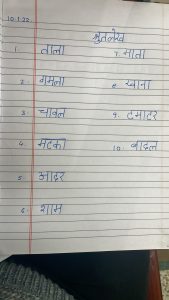 10.1.22.
श्रुतलेख
1. ताला
2. गमला
3. चावल
4. मटका
5. आदर
6. शाम
7. माता
8. खाना
9. टमाटर
10. बादल